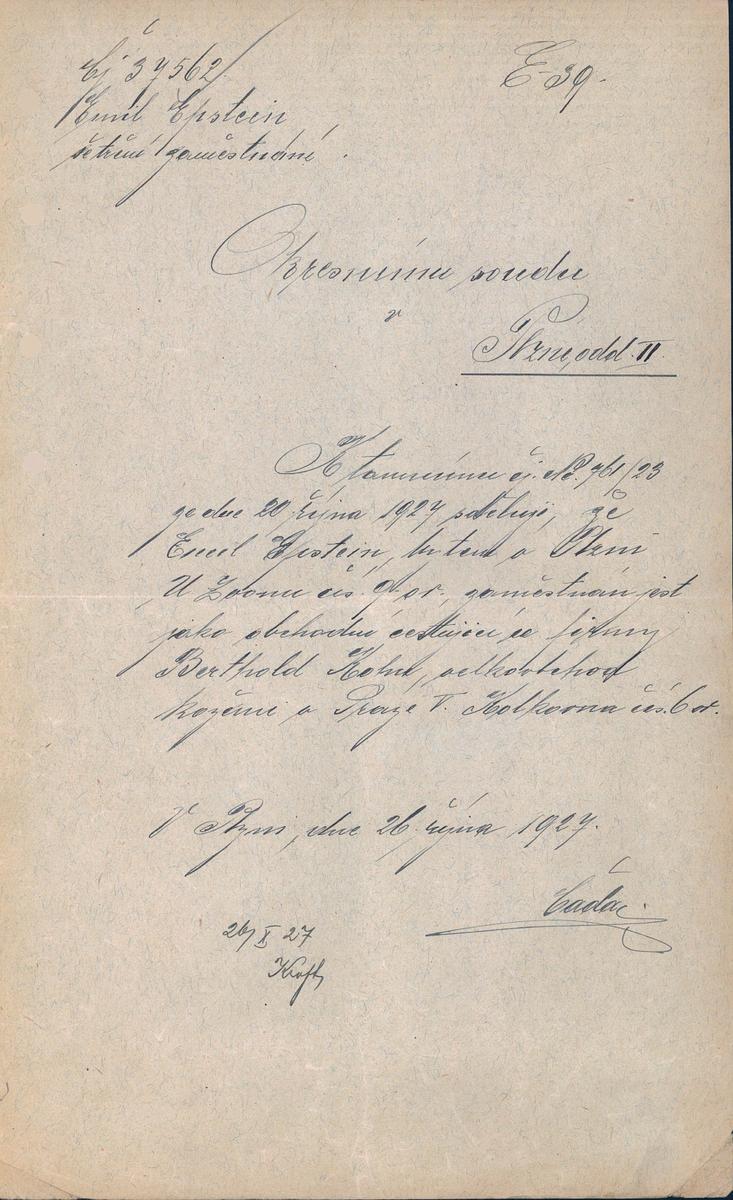 Čj 37562
E-39.
Emil Epstein
šetření zaměstnání.
Okresnímu soudu
v
Plzni, odd. II.
K tamnímu čj. Nc. 761/23
ze dne 20. října 1927 sděluji, že
Emil Epstein, bytem v Plzni
U Zvonu čís. 9 or., zaměstnán jest
jako obchodní cestující u firmy
Berthold Kohn, velkoobchod
kožemi v Praze V. Kolkovna čís. 6 or.
V Plzni, dne 26. října 1927.
26/X 27
Kraft